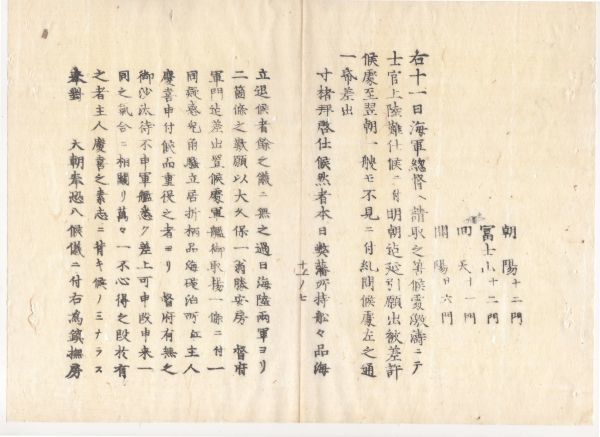 朝陽 十二門
富士山 十二門
回天 十一門
開陽 廿六門
右十一日海軍總督ヘ請取之筈候處激濤ニテ
士官上陸難仕候ニ付明朝迄延引願出候差許
候處至翌朝一艘モ不見ニ付糺問候處左之通
一帋差出
寸楮拜啓仕候然者本日弊藩所持船々品海
立退候者餘之儀ニ無之過日海陸兩軍ヨリ
二箇條之歎願以大久保一翁勝安房 督府
軍門迄差出置候處軍艦御取揚一條ニ付一
同疑惑 騷立居折柄品海碇泊所 主人
慶喜申付候品重役之者ヨリ 督府有無之
御沙汰待不申軍艦悉ク差上可申段申來一
同之氣合ニ相關リ萬々一不心得之段於有
之者主人慶喜之素志ニ背キ候ノミナラス
奉對 天朝奉恐入候儀ニ付右為鎮撫房
十五ノ七